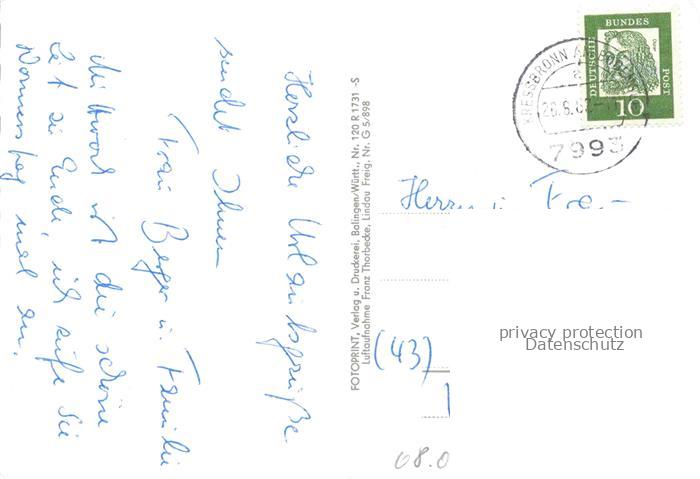 Herzliche Urlaubsgrüße
sendet Ihnen
Frau Berger u. Familie
Mittwoch ist die schöne
Zeit zu Ende, ich rufe Sie
Donnerstag mal an.
FOTOPRINT, Verlag u. Druckerei, Balingen/Württ., Nr. 120 R 1731 -S
Luftaufnahme Franz Thorbecke, Lindau Freig. Nr. G 5/898
DEUTSCHE
BUNDES
POST
Dürer
10
KRESSBRONN AM BODEN
a
7993
Herrn u.
(43)
privacy protection
Datenschutz
08.0